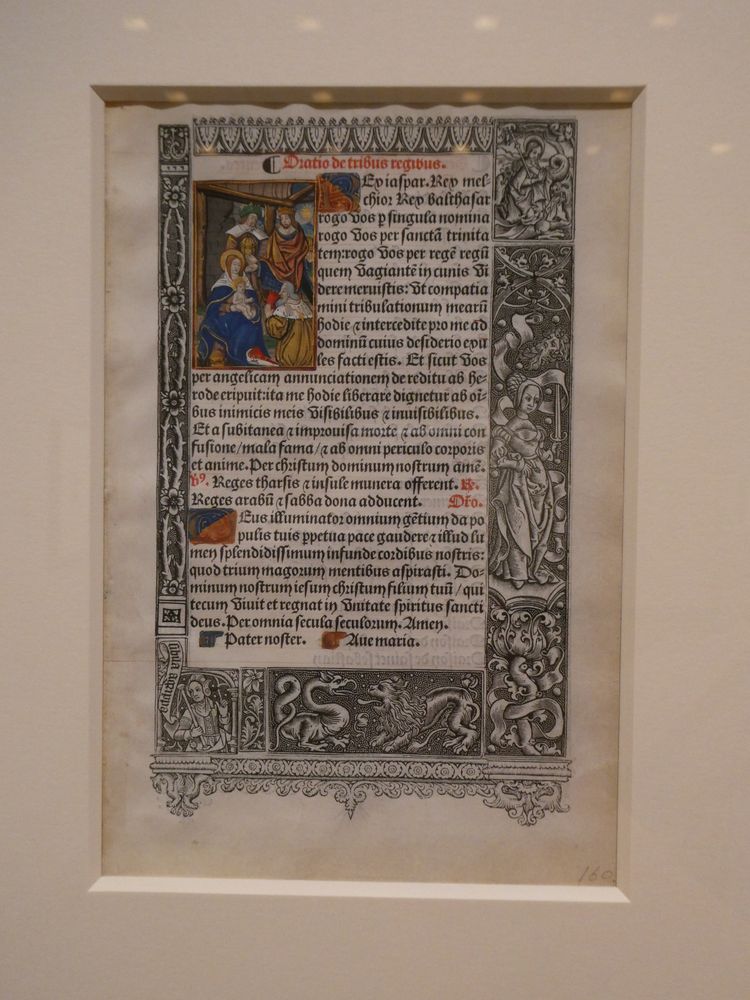 Oratio de tribus regibus.
Rex iaspar. Rex mel-
chior Rex balthasar
rogo vos p singula nomina
rogo vos per sanctā trinita
tem: rogo vos per regē regū
quem vagiantē in cunis vi
dere meruistis: vt compatia
mini tribulationum mearū
hodie ⁊ intercedite pro me ad
dominū cuius desiderio exu
les facti estis. Et sicut vos
per angelicam annunciationem de reditu ab he-
rode eripuit: ita me hodie liberare dignetur ab oī
bus inimicis meis visibilibus ⁊ inuisibilibus.
Et a subitanea ⁊ improuisa morte ⁊ ab omni con
fusione/mala fama/⁊ ab omni periculo corporis
et anime. Per christum dominum nostrum amē.
v9. Reges tharsis ⁊ insule munera offerent. R.
Reges arabū ⁊ sabba dona adducent. Oro.
Deus illuminator omnium gētium da po
pulis tuis ppetua pace gaudere ⁊ illud lu
men splendidissimum infunde cordibus nostris:
quod trium magorum mentibus aspirasti. Do-
minum nostrum iesum christum filium tuū/qui
tecum viuit et regnat in vnitate spiritus sancti
deus. Per omnia secula seculorum. Amen.
Pater noster. Aue maria.
160.